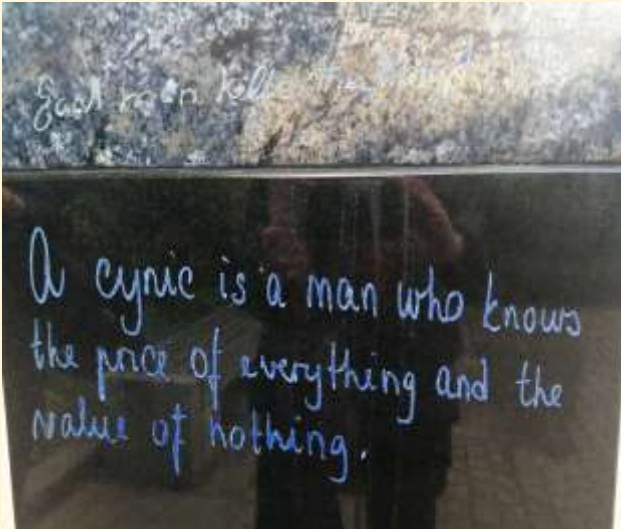 Each man kills the thing
A cynic is a man who knows
the price of everything and the
value of nothing.